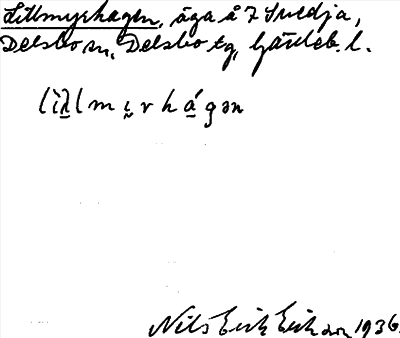 Lillmyrhagen, äga å 7 Svedja,
Delsbo sn, Delsbo tg, Gävleb. l.
lìλ̠l m ɩ̰ r h á̠ g ən
Nils Erik Eriksson 1936.